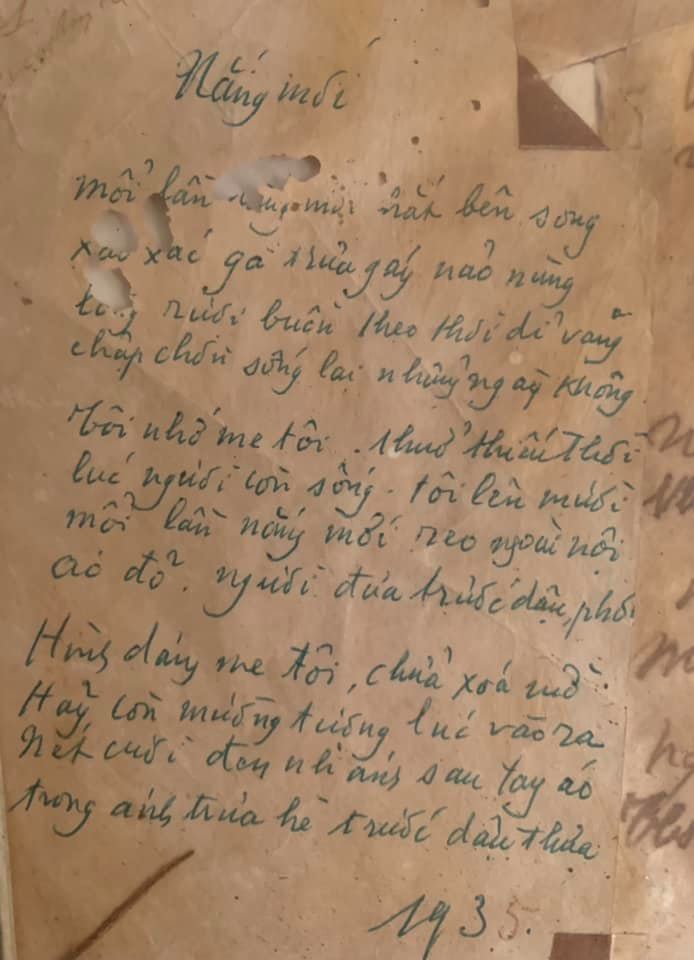 Nắng mới
Mỗi lần nắng mới hắt bên song
Xao xác gà trưa gáy não nùng
Lòng rười buồn theo thời dĩ vãng
Chập chờn sống lại những ngày không.
Tôi nhớ me tôi. thuở thiếu thời
Lúc người còn sống. tôi lên mười
Mỗi lần nắng mới reo ngoài nội
Áo đỏ. người đưa trước dậu, phơi
Hình dáng me tôi, chửa xoá mờ
Hãy còn mường tượng lúc vào ra
Nét cười đen nhánh sau tay áo
Trong ánh trưa hè trước dậu thưa
1935.